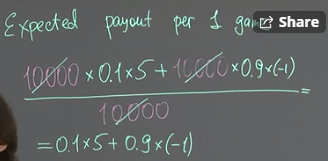 Expected payout per 1
Share
10000 × 0.1 × 5 + 10000 × 0.9 × (-1)
10000
=
= 0.1 × 5 + 0.9 × (-1)